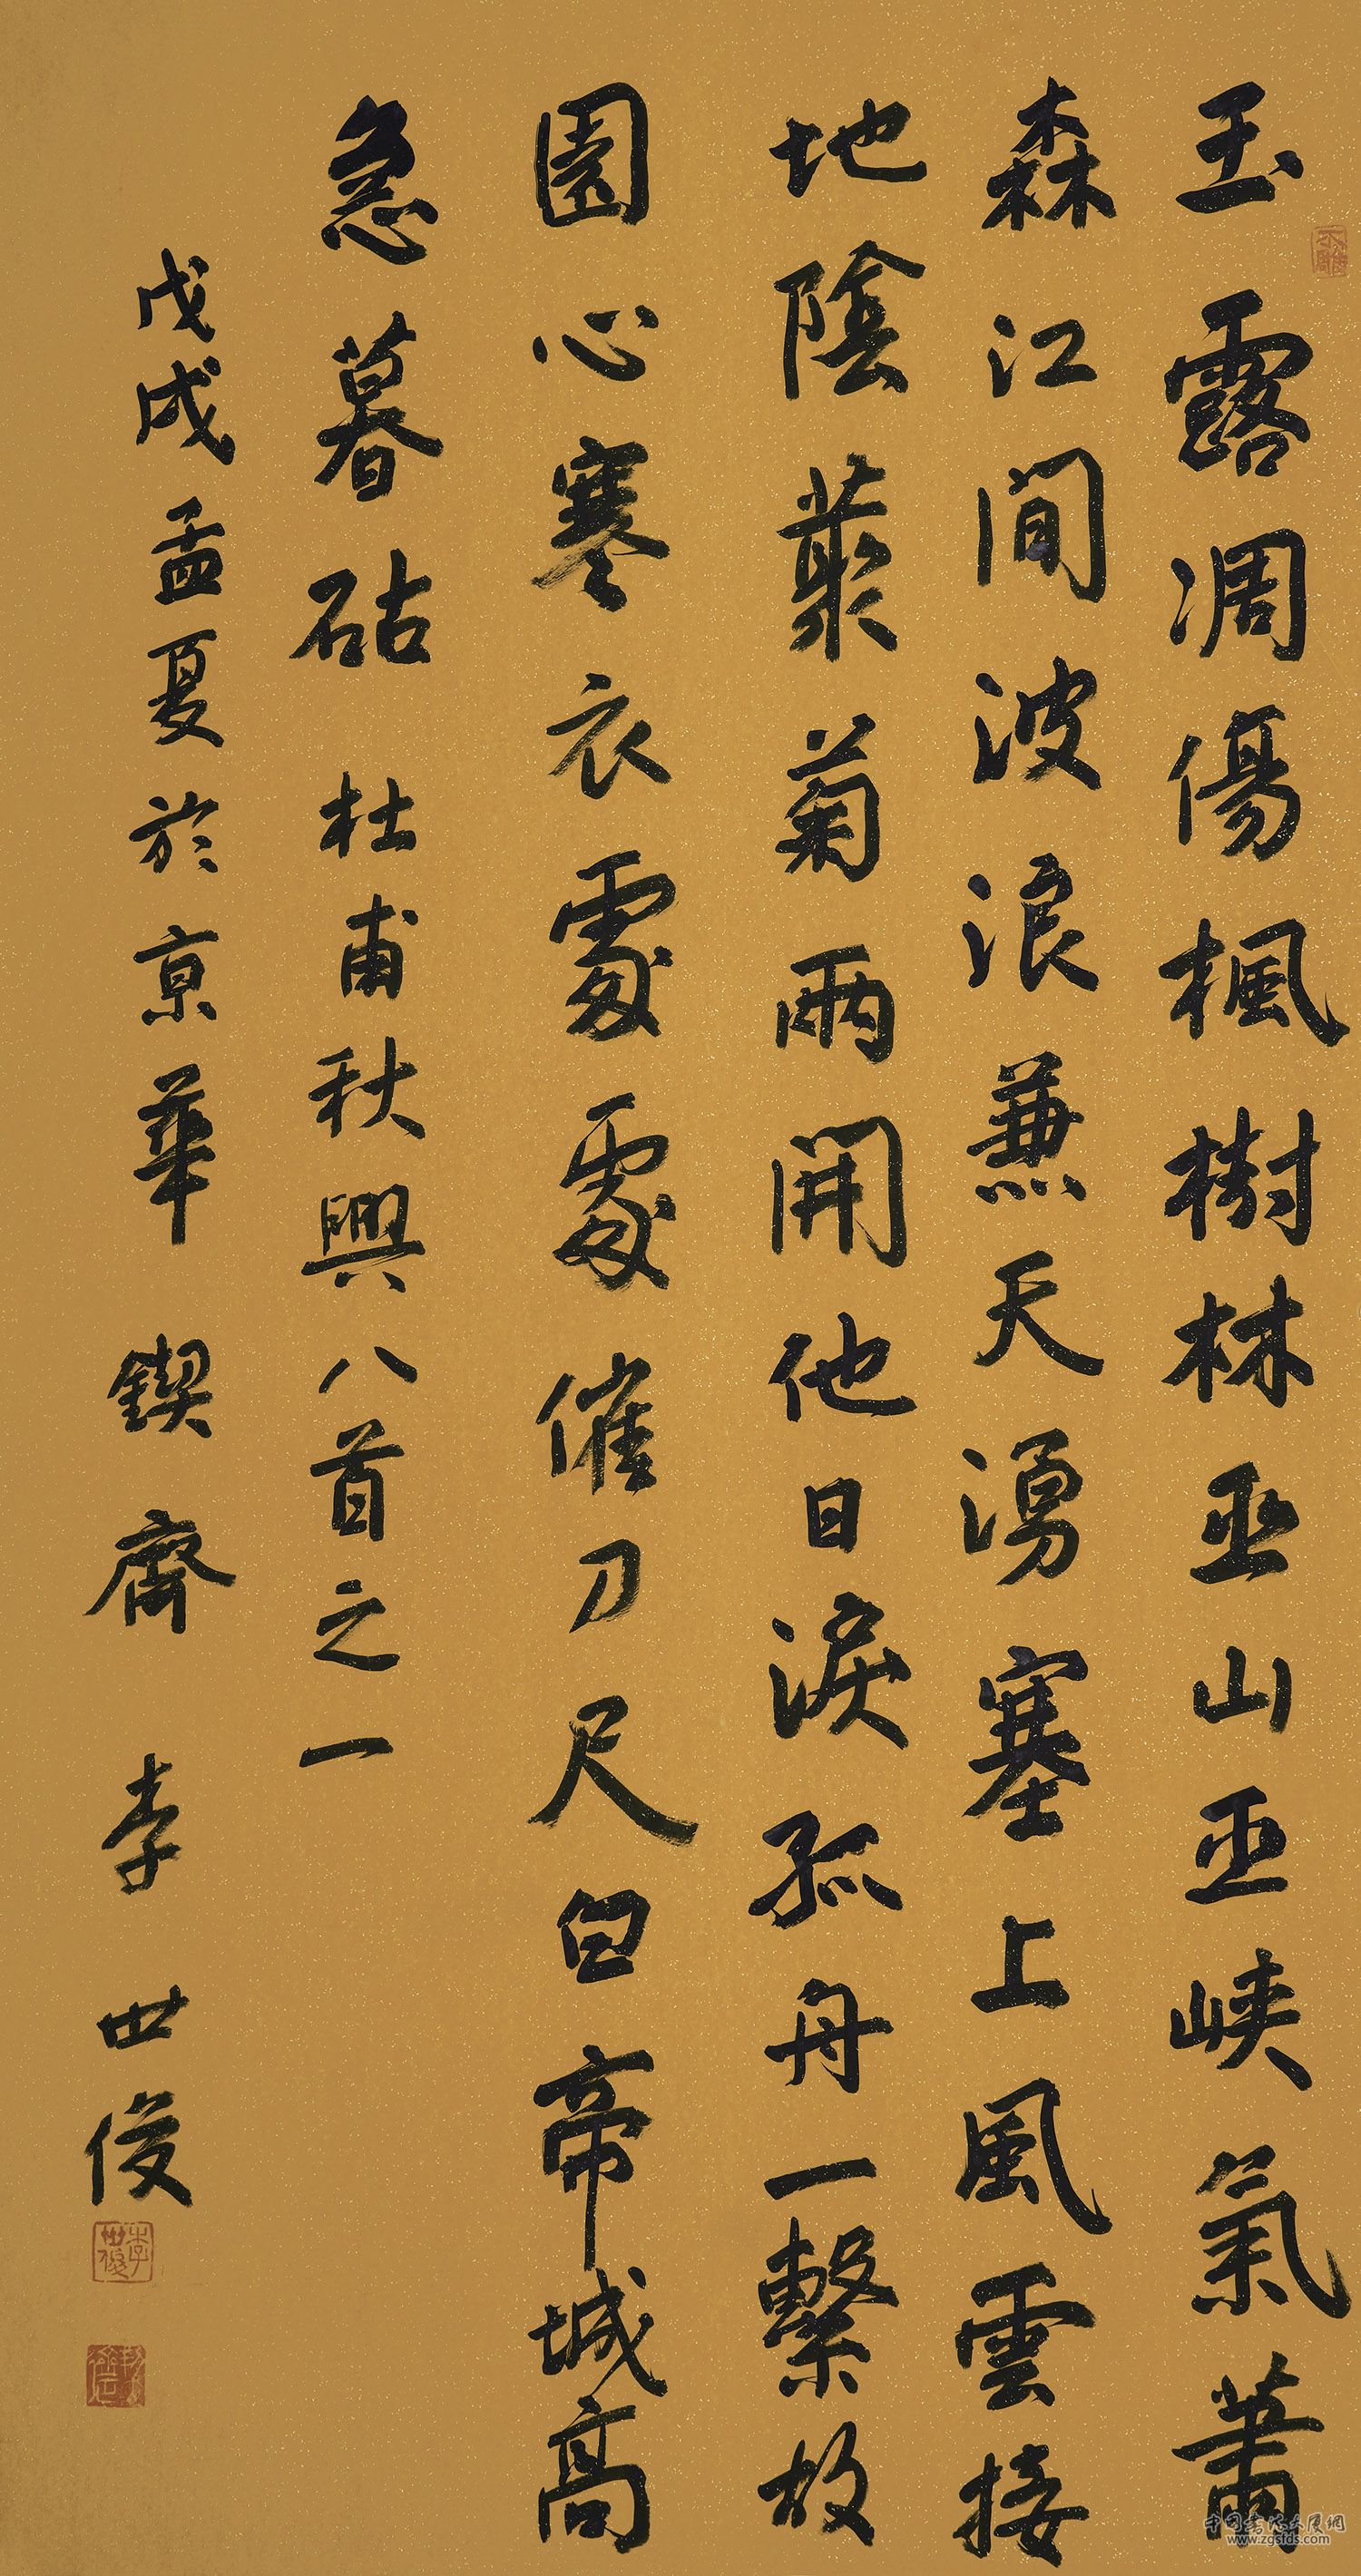 玉露凋傷楓樹林巫山巫峽氣蕭
森江間波浪兼天湧塞上風雲接
地陰叢菊兩開他日淚孤舟一繫故
園心寒衣處處催刀尺白帝城高
急暮砧 杜甫秋興八首之一
戊戌孟夏於京華 鍥齋 李世俊
不雕
李世俊
中国书法大展网
www.zgsfds.com